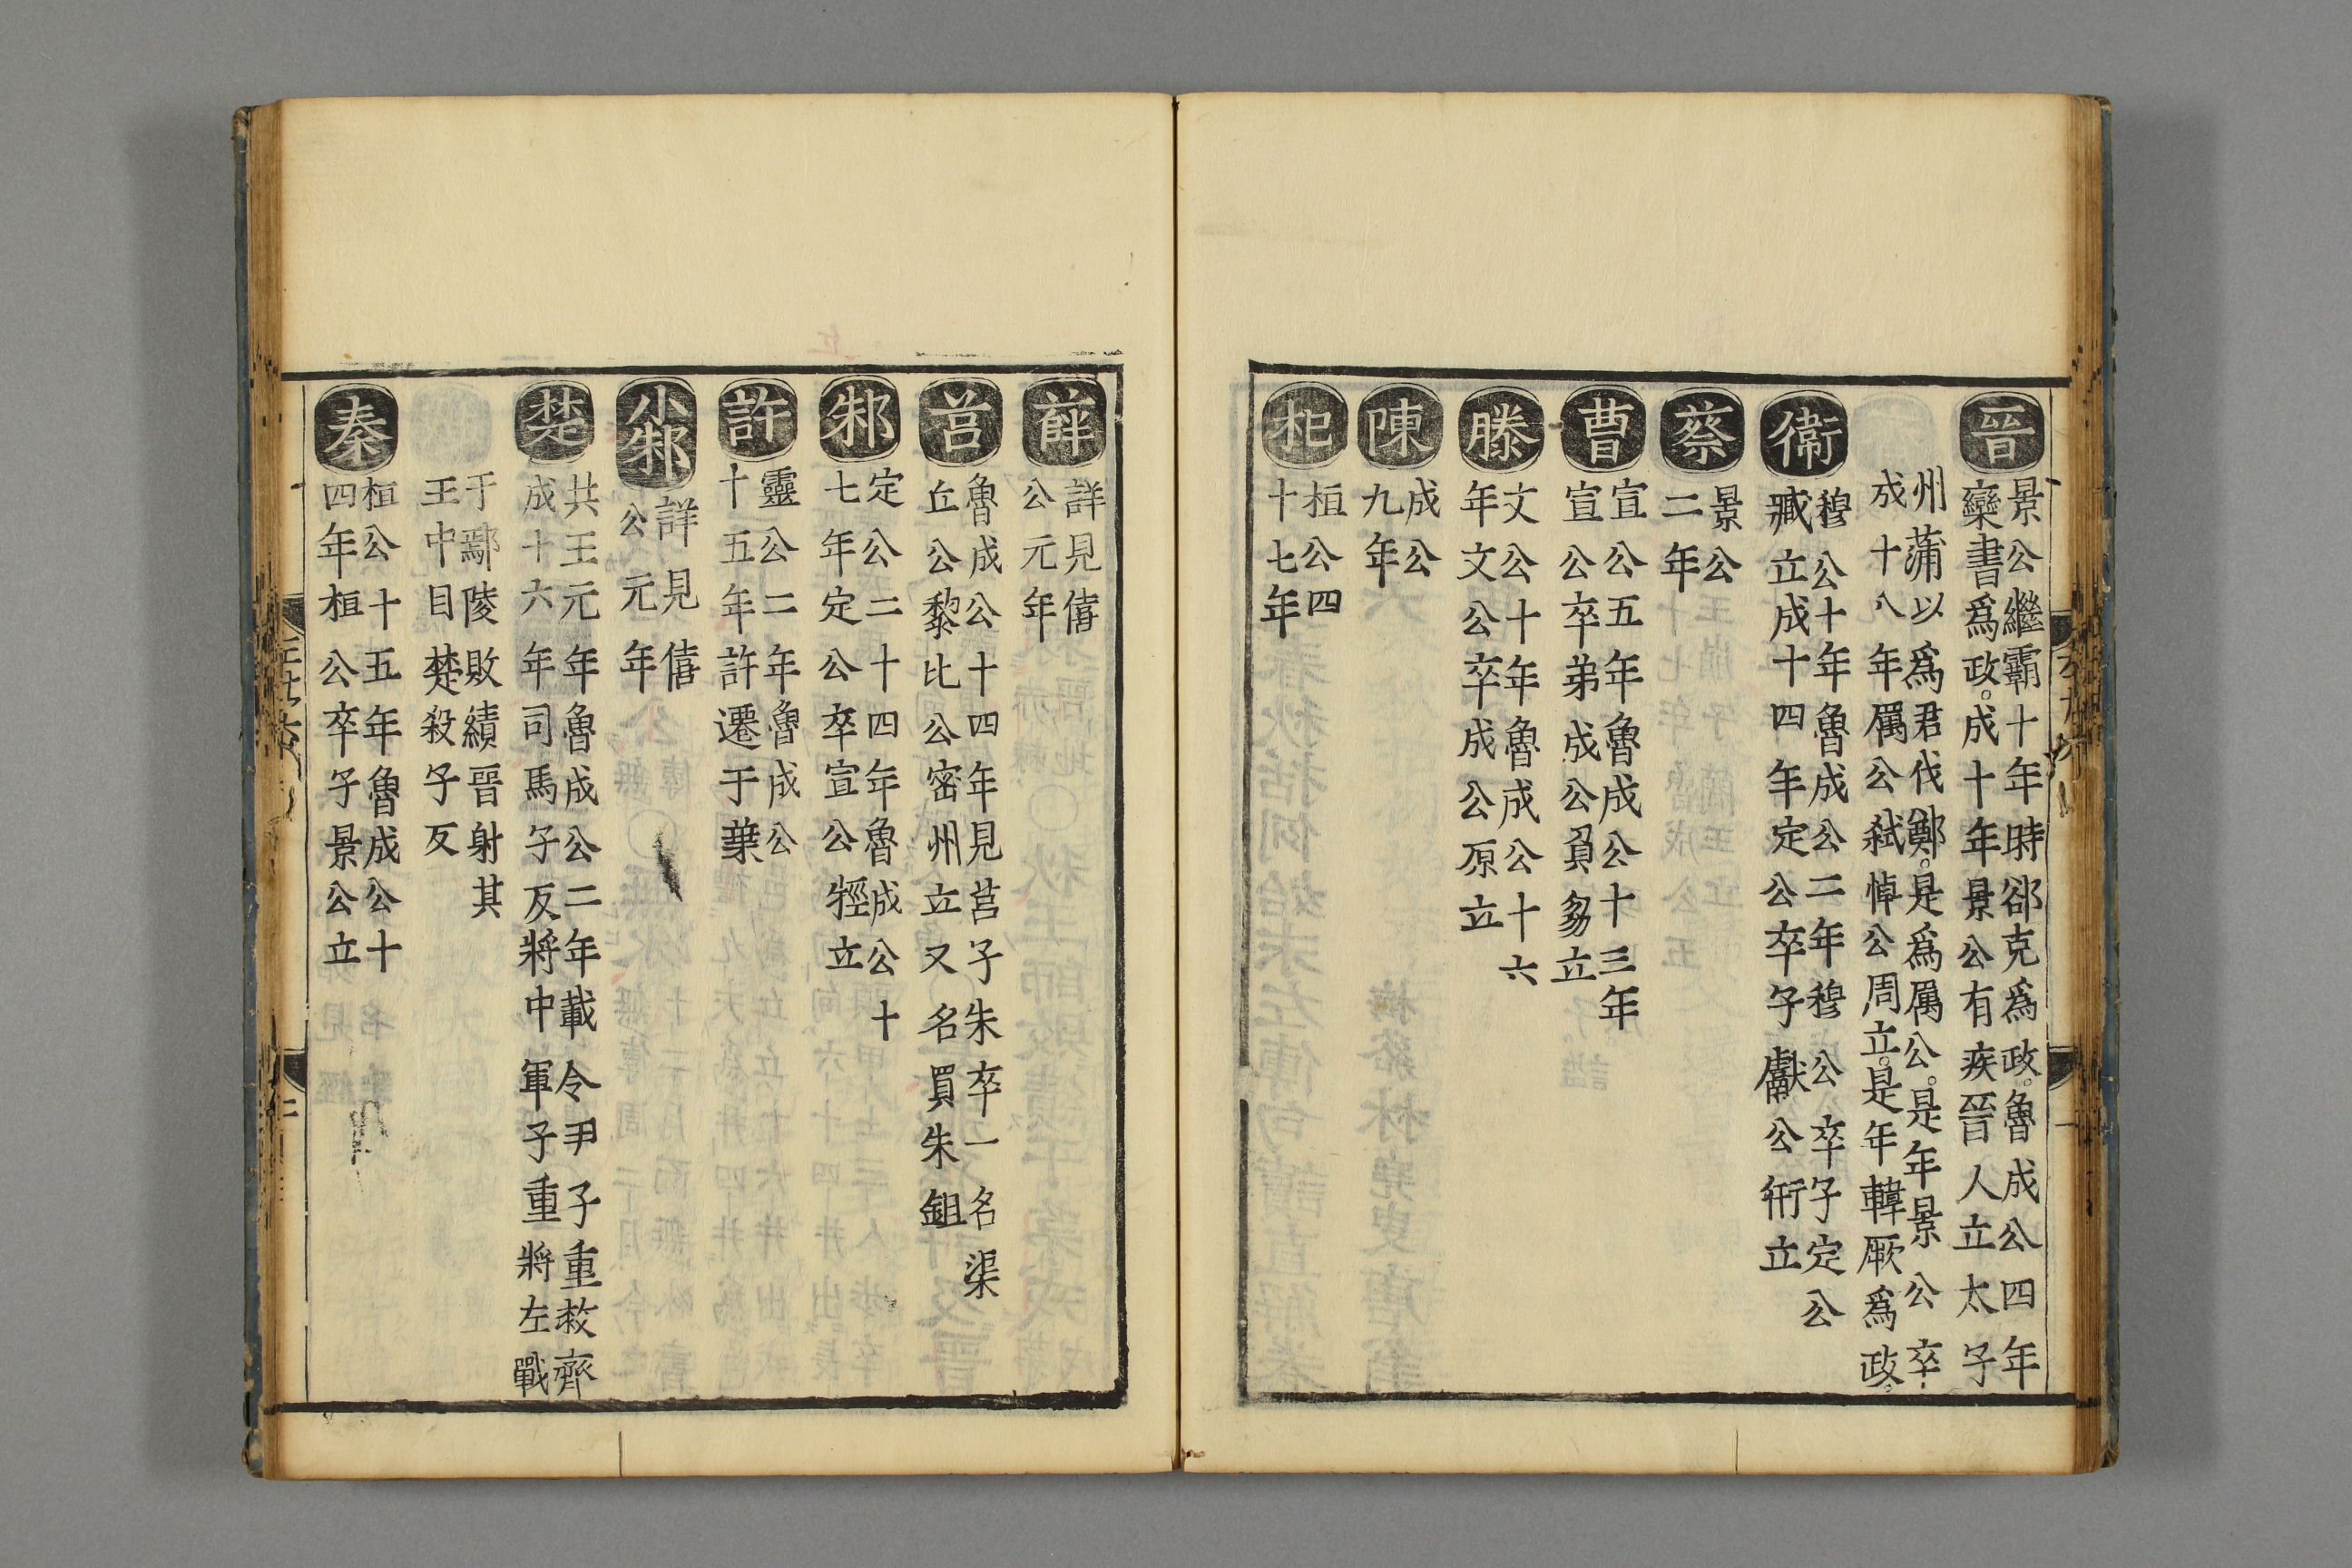 晉
景公繼霸十年時郤克爲政。魯成公四年
欒書爲政。成十年景公有疾晉人立太子
州蒲以爲君伐鄭。是爲厲公。是年景公卒
成十八年厲公弑悼公周立。是年韓厥爲政。
衞
穆公十年魯成公二年穆公卒子定公
臧立成十四年定公卒子獻公衎立
蔡
景公
二年
曹
宣公五年魯成公十三年
宣公卒弟成公負芻立
滕
文公十年魯成公十六
年文公卒成公原立
陳
成公
九年
杞
桓公四
十七年
薛
詳見僖
公元年
莒
魯成公十四年見莒子朱卒一名渠
丘公黎比公密州立又名買朱鉏
邾
定公二十四年魯成公十
七年定公卒宣公牼立
許
靈公二年魯成公
十五年許遷于葉
小邾
詳見僖
公元年
楚
共王元年魯成公二年載令尹子重救齊
成十六年司馬子反將中軍子重將左戰
于鄢陵敗績晉射其
王中目楚殺子反
秦
桓公十五年魯成公十
四年桓公卒子景公立